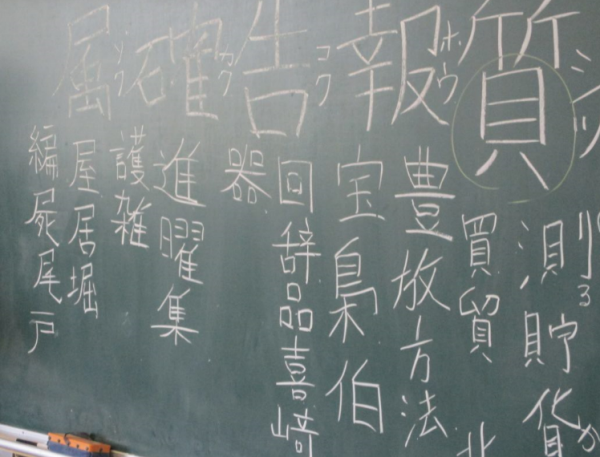 質 シツ
測る貯貨か
買貿北
報 ホウ
豊放方法
宝梟伯
告 コク
回辞品喜﨑
器
確 カク
進曜集
護雑
属 ゾク
屋居堀
編屍尾戸